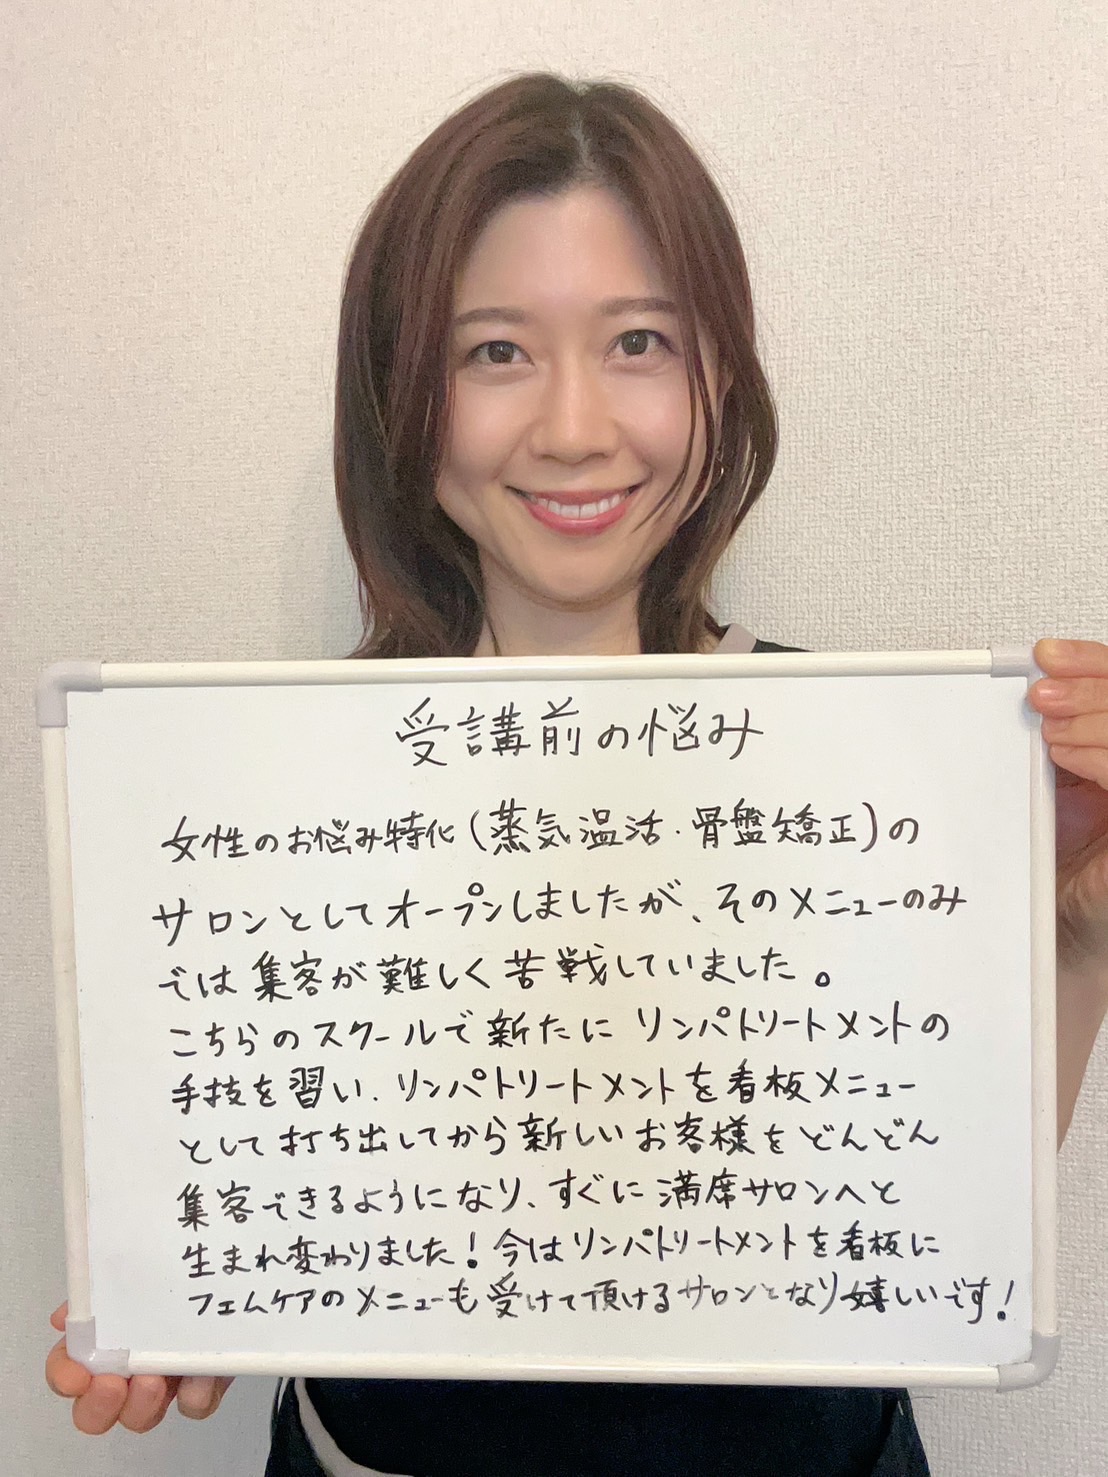 受講前の悩み
女性のお悩み特化(蒸気温活・骨盤矯正)の
サロンとしてオープンしましたが、そのメニューのみ
では集客が難しく苦戦していました。
こちらのスクールで新たにリンパトリートメントの
手技を習い、リンパトリートメントを看板メニュー
として打ち出してから新しいお客様をどんどん
集客できるようになり、すぐに満席サロンへと
生まれ変わりました!今はリンパトリートメントを看板に
フェムケアのメニューも受けて頂けるサロンとなり嬉しいです!